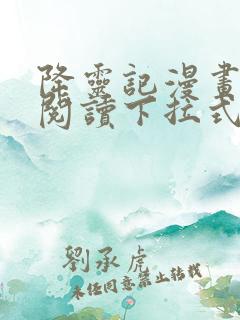 降靈記漫畫
閱讀下拉式
劉承虎
未經同意禁止轉載